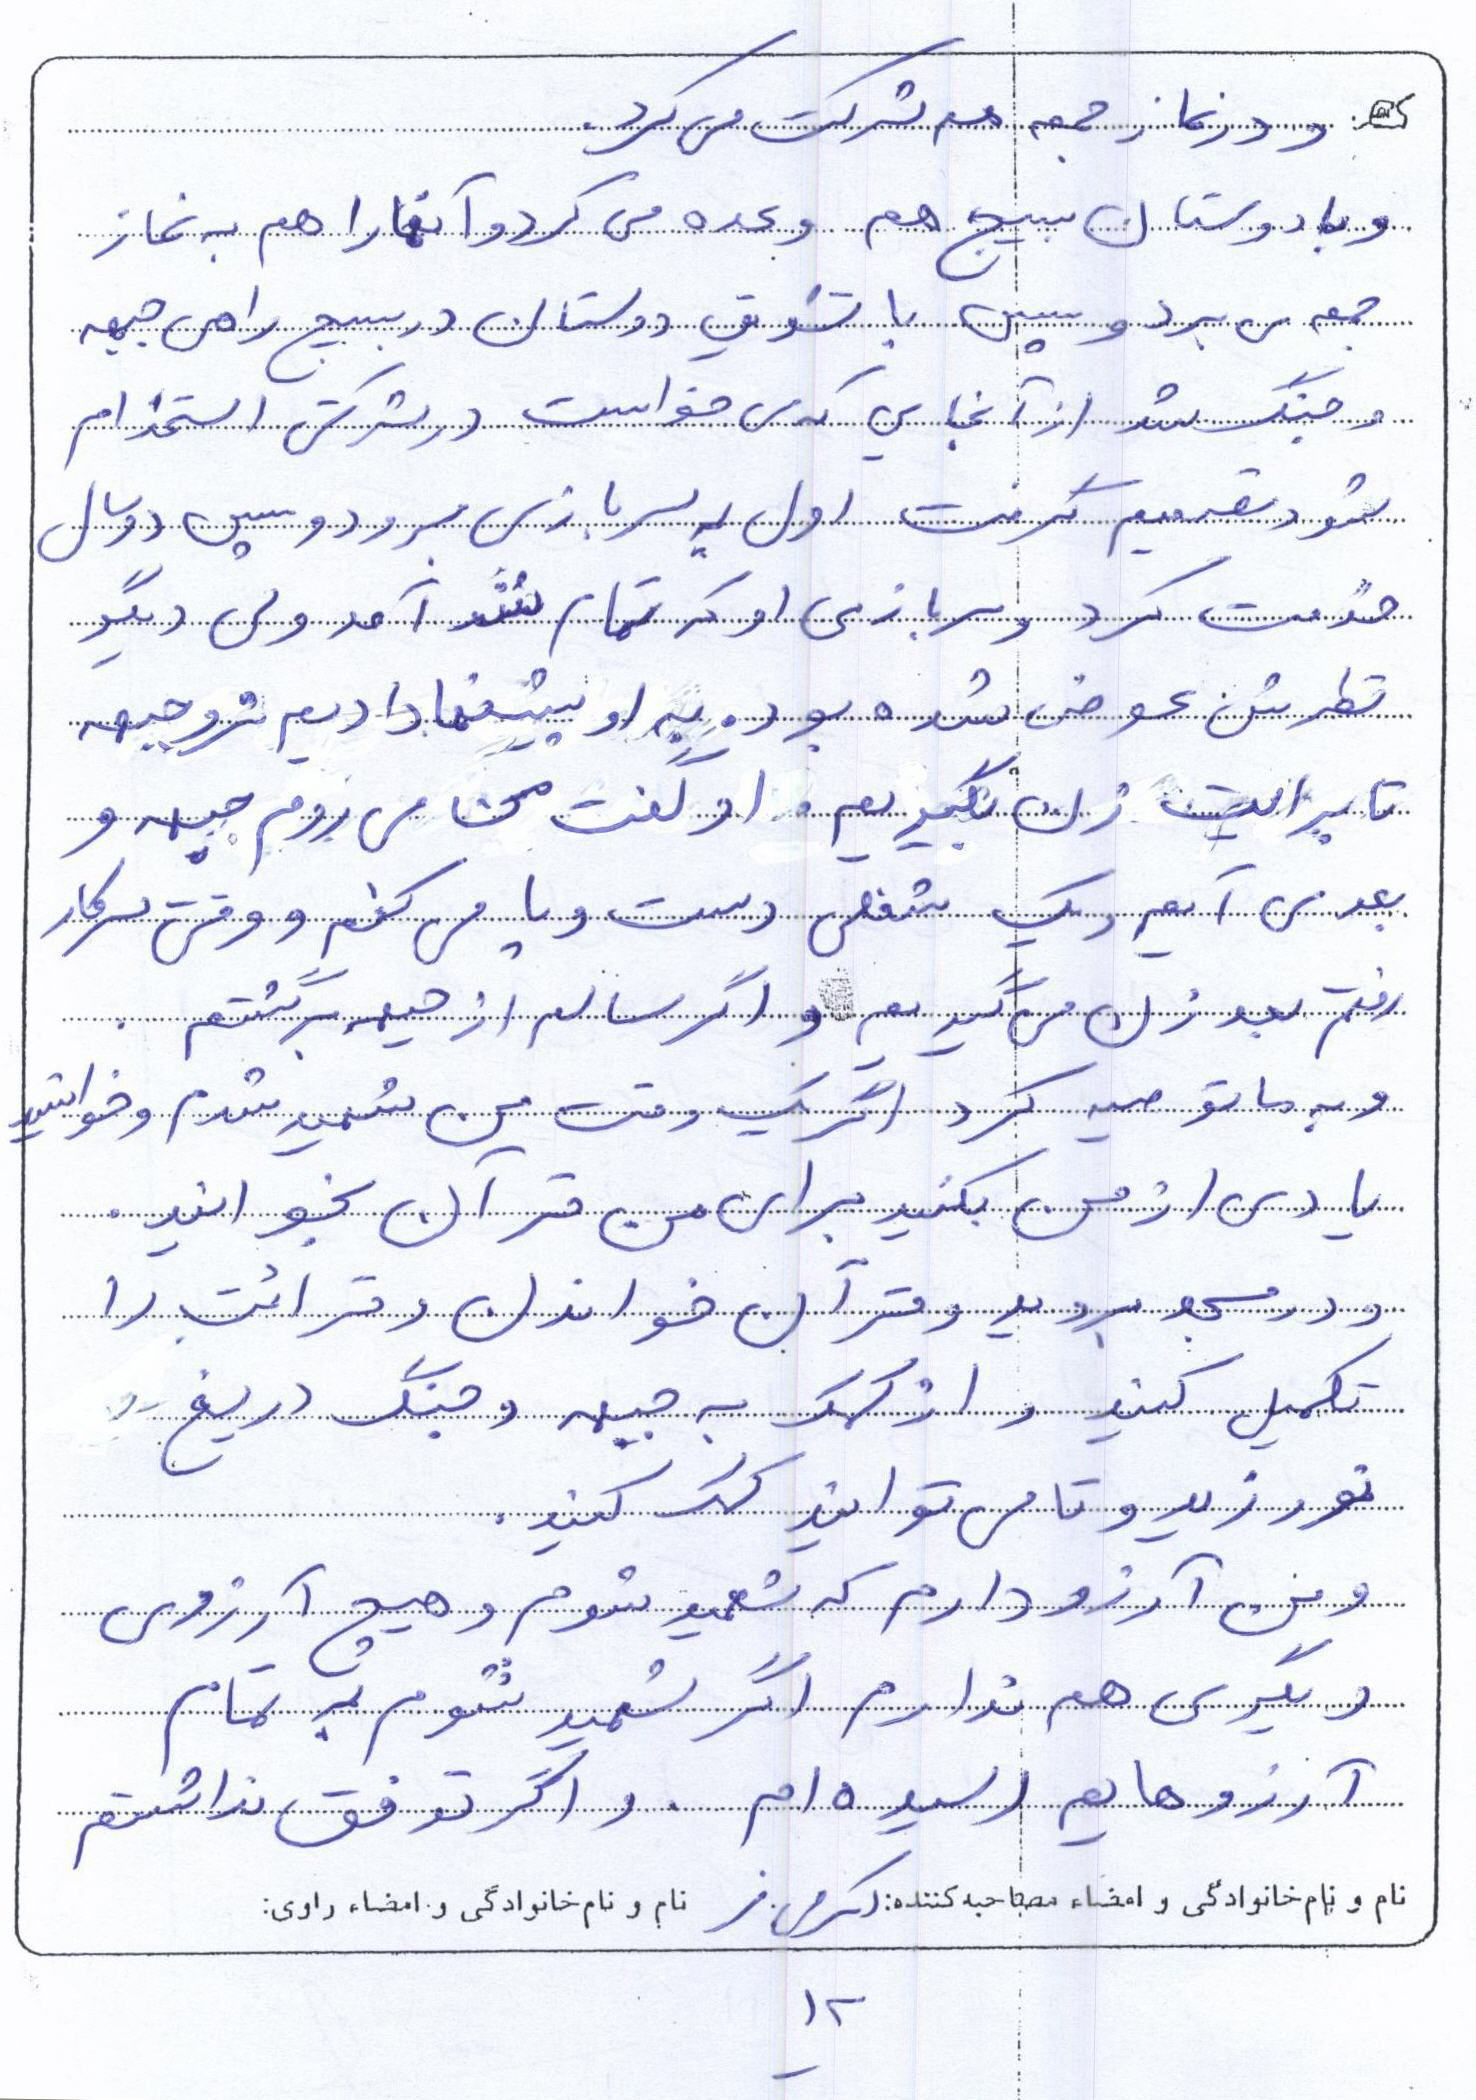 و در نماز جمعه هم شرکت می کرد.
و با دوستان بسیج هم وعده می کرد و آنها را هم به نماز
جمعه می برد و سپس با تشویق دوستان در بسیج راهی جبهه
و جنگ شد از آنجایی که می خواست در شرکتی استخدام
شود تصمیم گرفت اول به سربازی برود و سپس دو سال
خدمت کرد و سربازی او که تمام شد آمد ولی دیگر
نظرش عوض شده بود. به او پیشنهاد دادیم نرو جبهه
تا برایت زن بگیریم و او گفت می روم جبهه و
بعد می آیم و یک شغلی دست و پا می کنم و وقتی سر کار
رفتم بعد زن می گیریم و اگر سالم از جبهه برگشتم.
و به ما توصیه کرد اگر یک وقت من شهید شدم و خواستید
یادی از من بکنید برای من قرآن بخوانید.
و در مسجد بروید و قرآن خواندن و قرائت را
تکمیل کنید و از کمک به جبهه و جنگ دریغ
نورزید و تا می توانید کمک کنید.
و من آرزو دارم که شهید شوم و هیچ آرزوی
دیگری هم ندارم اگر شهید شوم به تمام
آرزوهایم رسیده ام. و اگر توفق نداشتم
نام و نام خانوادگی و امضاء مصاحبه کننده: اکرمی فر نام و نام خانوادگی و امضاء راوی:
۱۲